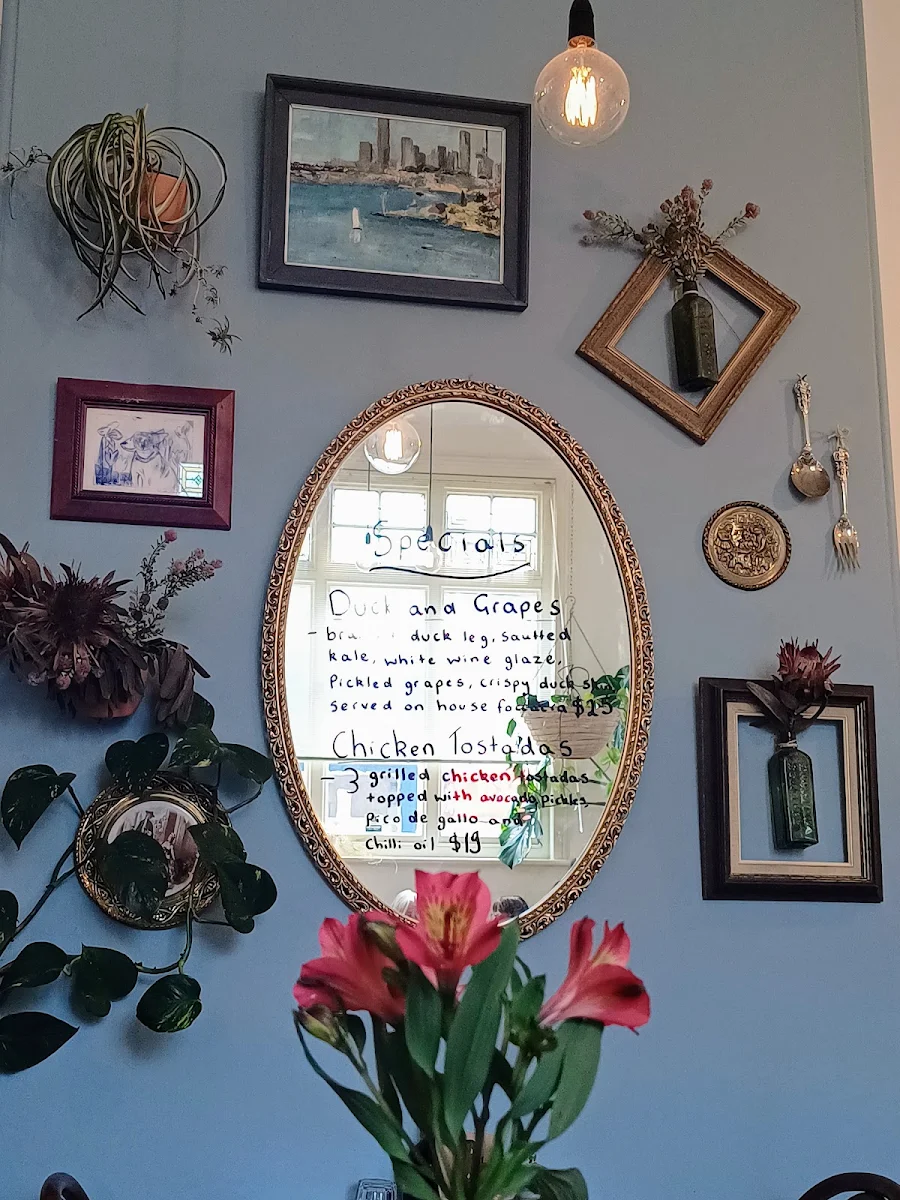 Specials
Duck and Grapes
- duck leg, sauteed
kale, white wine glaze,
Pickled grapes, crispy duck skin
served on house foccacia $25
Chicken Tostadas
- 3 grilled chicken tostadas
topped with avocado, pickles
Pico de gallo and
Chilli oil $19